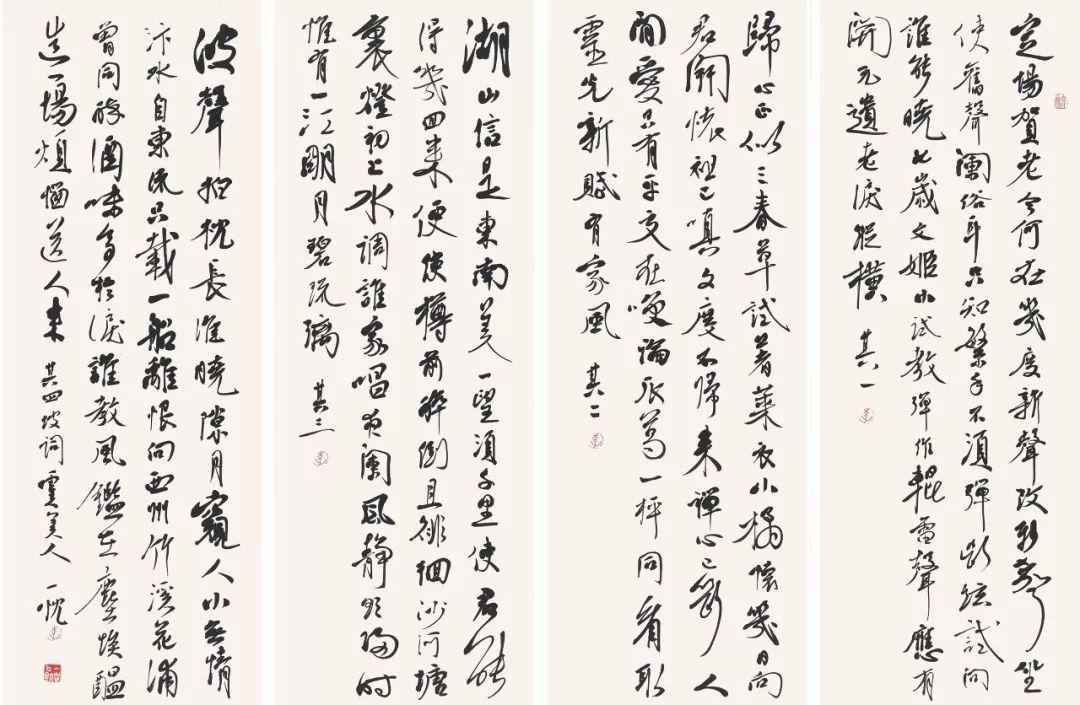 定場賀老今何在幾度新聲改新聲坐
使舊聲闌俗耳只知繁手不須彈斷絃試問
誰能曉七歲文姬小試教彈作輥雷聲應有
開元遺老淚縱橫 其一
歸心正似三春草試著萊衣小橘懷幾日向
君開懷祖已嗔文度不歸來禪心已斷人
間愛只有平交在笑論瓜葛一枰同看取
靈光新賦有家風 其二
湖山信是東南美一望須千里使君能
得幾回來便使樽前醉倒且徘徊沙河塘
裏燈初上水調誰家唱夜闌風靜欲歸時
惟有一江明月碧琉璃 其三
波聲拍枕長淮曉隙月窺人小無情
汴水自東流只載一船離恨向西州竹溪花浦
曾同醉酒味多於淚誰教風鑑在塵埃醞
造一場煩惱送人來 其四坡詞虞美人 一